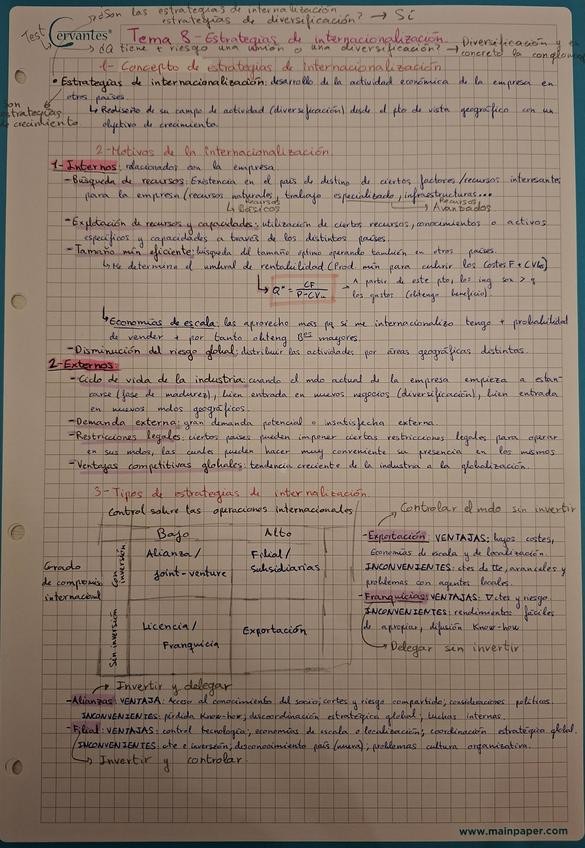 ¿Son las estrategias de internalización
estrategias de diversificación? → Sí
Test
Cervantes
Tema 8 - Estrategias de internacionalización.
¿Q tiene + riesgo una unión o una diversificación? → Diversificación y en
concreto la conglom
1- Concepto de estrategias de internacionalización
• Estrategias de internacionalización: desarrollo de la actividad económica de la empresa en
otros países.
Son
estrategias
de crecimiento
↳ Rediseño de su campo de actividad (diversificación) desde el pto de vista geográfico con un
objetivo de crecimiento.
2- Motivos de la internacionalización
1- Internos: relacionados con la empresa.
- Búsqueda de recursos: Existencia en el país de destino de ciertos factores/recursos interesantes
para la empresa (recursos naturales, trabajo especializado, infraestructuras...
↳ Recursos Básicos
→ Recursos Avanzados
- Explotación de recursos y capacidades: utilización de ciertos recursos, conocimientos o activos
específicos y capacidades a través de los distintos países.
- Tamaño mín eficiente: búsqueda del tamaño óptimo operando también en otros países.
↳ Me determina el umbral de rentabilidad (Prod. mín para cubrir los costes F + CVta)
↳ Q* = CF / P-CVu
→ A partir de este pto, los ing son > q
los gastos (obtengo beneficio).
↳ Economías de escala: las aprovecho más pq si me internacionalizo tengo + probabilidad
de vender + y por tanto obteng Bºs mayores.
- Disminución del riesgo global: distribuir las actividades por áreas geográficas distintas.
2- Externos:
- Ciclo de vida de la industria: cuando el mdo actual de la empresa empieza a estan-
carse (fase de madurez), bien entrada en nuevos negocios (diversificación), bien entrada
en nuevos mdos geográficos.
- Demanda externa: gran demanda potencial o insatisfecha externa.
- Restricciones legales: ciertos países pueden imponer ciertas restricciones legales para operar
en sus mdos, las cuales pueden hacer muy conveniente su presencia en los mismos.
- Ventajas competitivas globales: tendencia creciente de la industria a la globalización.
3- Tipos de estrategias de internalización.
Control sobre las operaciones internacionales
Bajo
Alto
Grado
de compromiso
internacional
Con inversión
Alianza /
Joint-venture
Filial /
Subsidiarias
Sin inversión
Licencia /
Franquicia
Exportación
→ Controlar el mdo sin invertir
- Exportación: VENTAJAS: bajos costes,
Economías de escala y de localización.
INCONVENIENTES: ctes de tte, aranceles y
problemas con agentes locales.
- Franquicias: VENTAJAS: ∇ ctes y riesgo
INCONVENIENTES: rendimientos fáciles
de apropiar, difusión Know-how
→ Delegar sin invertir
→ Invertir y delegar
- Alianzas: VENTAJA: Acceso al conocimiento del socio; costes y riesgo compartido; consideraciones políticas.
INCONVENIENTES: pérdida Know-how; descoordinación estratégica global; luchas internas.
- Filial: VENTAJAS: control tecnología; economías de escala o localización; coordinación estratégica global.
INCONVENIENTES: cte e inversión; desconocimiento país (nuevo); problemas cultura organizativa.
→ Invertir y controlar.
www.mainpaper.com